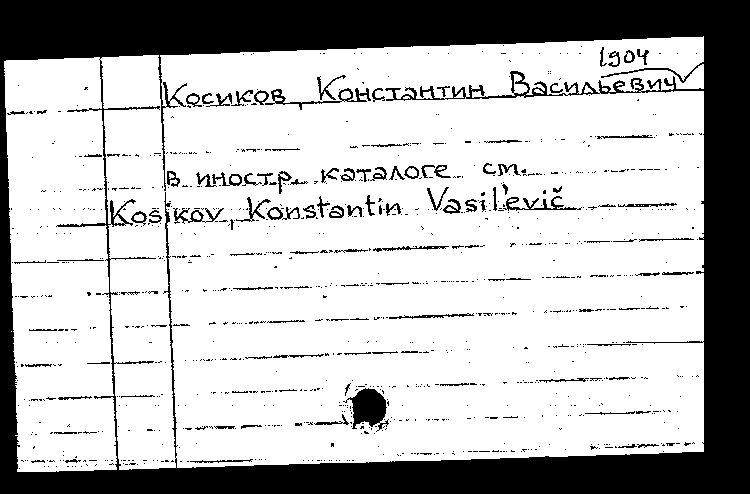 1904
Косиков, Константин Васильевич
в иностр. каталоге см.
Kosikov, Konstantin Vasil'evič